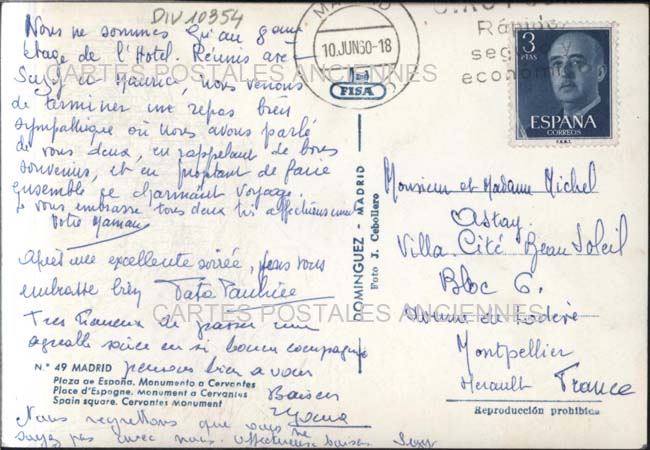 DIV10354
Nous ne sommes qu'au 9ème
étage de l'Hotel. Réunis avec
Suzy et Maurice, nous venons
de terminer un repas bien
sympathique où nous avons parlé
de vous deux, en rappelant de bons
souvenirs, et en projetant de faire
ensemble ce charmant voyage.
Je vous embrasse tous deux très affectueusement
Votre Maman
Après une excellente soirée, je vous
embrasse bien Tata
Très heureux de passer une
agréable soirée en si bonne compagnie
pensons bien à vous
Baisers
Nous regrettons que vous ne
soyez pas avec nous. Affectueux baisers
N.º 49 MADRID
Plaza de España. Monumento a Cervantes
Place d'Espagne. Monument a Cervantes
Spain square. Cervantes Monument
CARTES POSTALES ANCIENNES
CARTES POSTALES ANCIENNES
MADRID
10.JUN60-18
Rápido
economi
FISA
DOMINGUEZ - MADRID
Foto J. Cebollero
3
PTAS
ESPAÑA
CORREOS
F.N.M.T.
Monsieur et Madame Michel
Astay
Villa Cité Beau Soleil
Bloc 6.
Avenue de Lodève
Montpellier
Hérault France
Reproducción prohibida